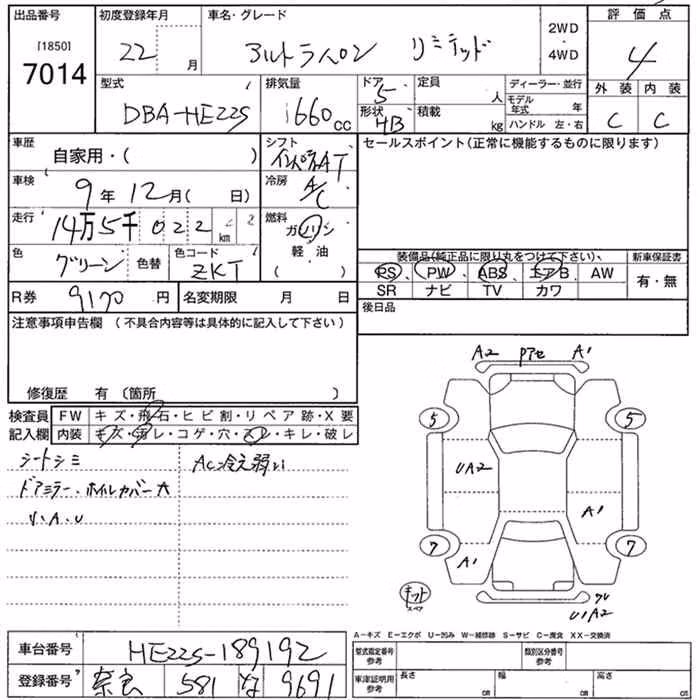 出品番号 初度登録年月 車名・グレード 評価点
[1850]
7014
22 月 アルトラパン リミテッド 2WD ・ 4WD 4
型式 排気量 ドア 定員 ディーラー・並行 外装 内装
DBA-HE22S 660cc 5 人 モデル年式 年 C C
形状 積載
HB kg ハンドル 左・右
車歴 シフト セールスポイント(正常に機能するものに限ります)
自家用・( ) インパネAT
車検 9年 12月( 日) 冷房 A/C
走行 14万5千022 km 燃料 ガソリン
軽油
( )
色 グリーン 色替 色コード ZKT
装備品(純正品に限り丸をつけて下さい) 新車保証書
PS、PW、ABS、エアB AW 有・無
SR ナビ TV カワ
R券 9170円 名変期限 月 日 後日品
注意事項申告欄 (不具合内容等は具体的に記入して下さい)
修復歴 有 (箇所 )
検査員 FW キズ・飛石・ヒビ割・リペア跡・X要
記入欄 内装 キズ・汚レ・コゲ・穴・スレ・キレ・破レ
シートシミ AC冷え弱い
ドアミラー、ホイルカバー大
U、A、U
A2 Pアセ A1
5 5
UA2
A1
7 7
A1
キット
スペア
ワレ
U1A2
A−キズ E−エクボ U−凹み W−補修跡 S−サビ C−腐食 XX−交換済
車台番号 HE22S-189192 型式指定番号 参考 類別区分番号 参考
登録番号 奈良 581 な 9691 車庫証明用 参考 長さ cm 幅 cm 高さ cm